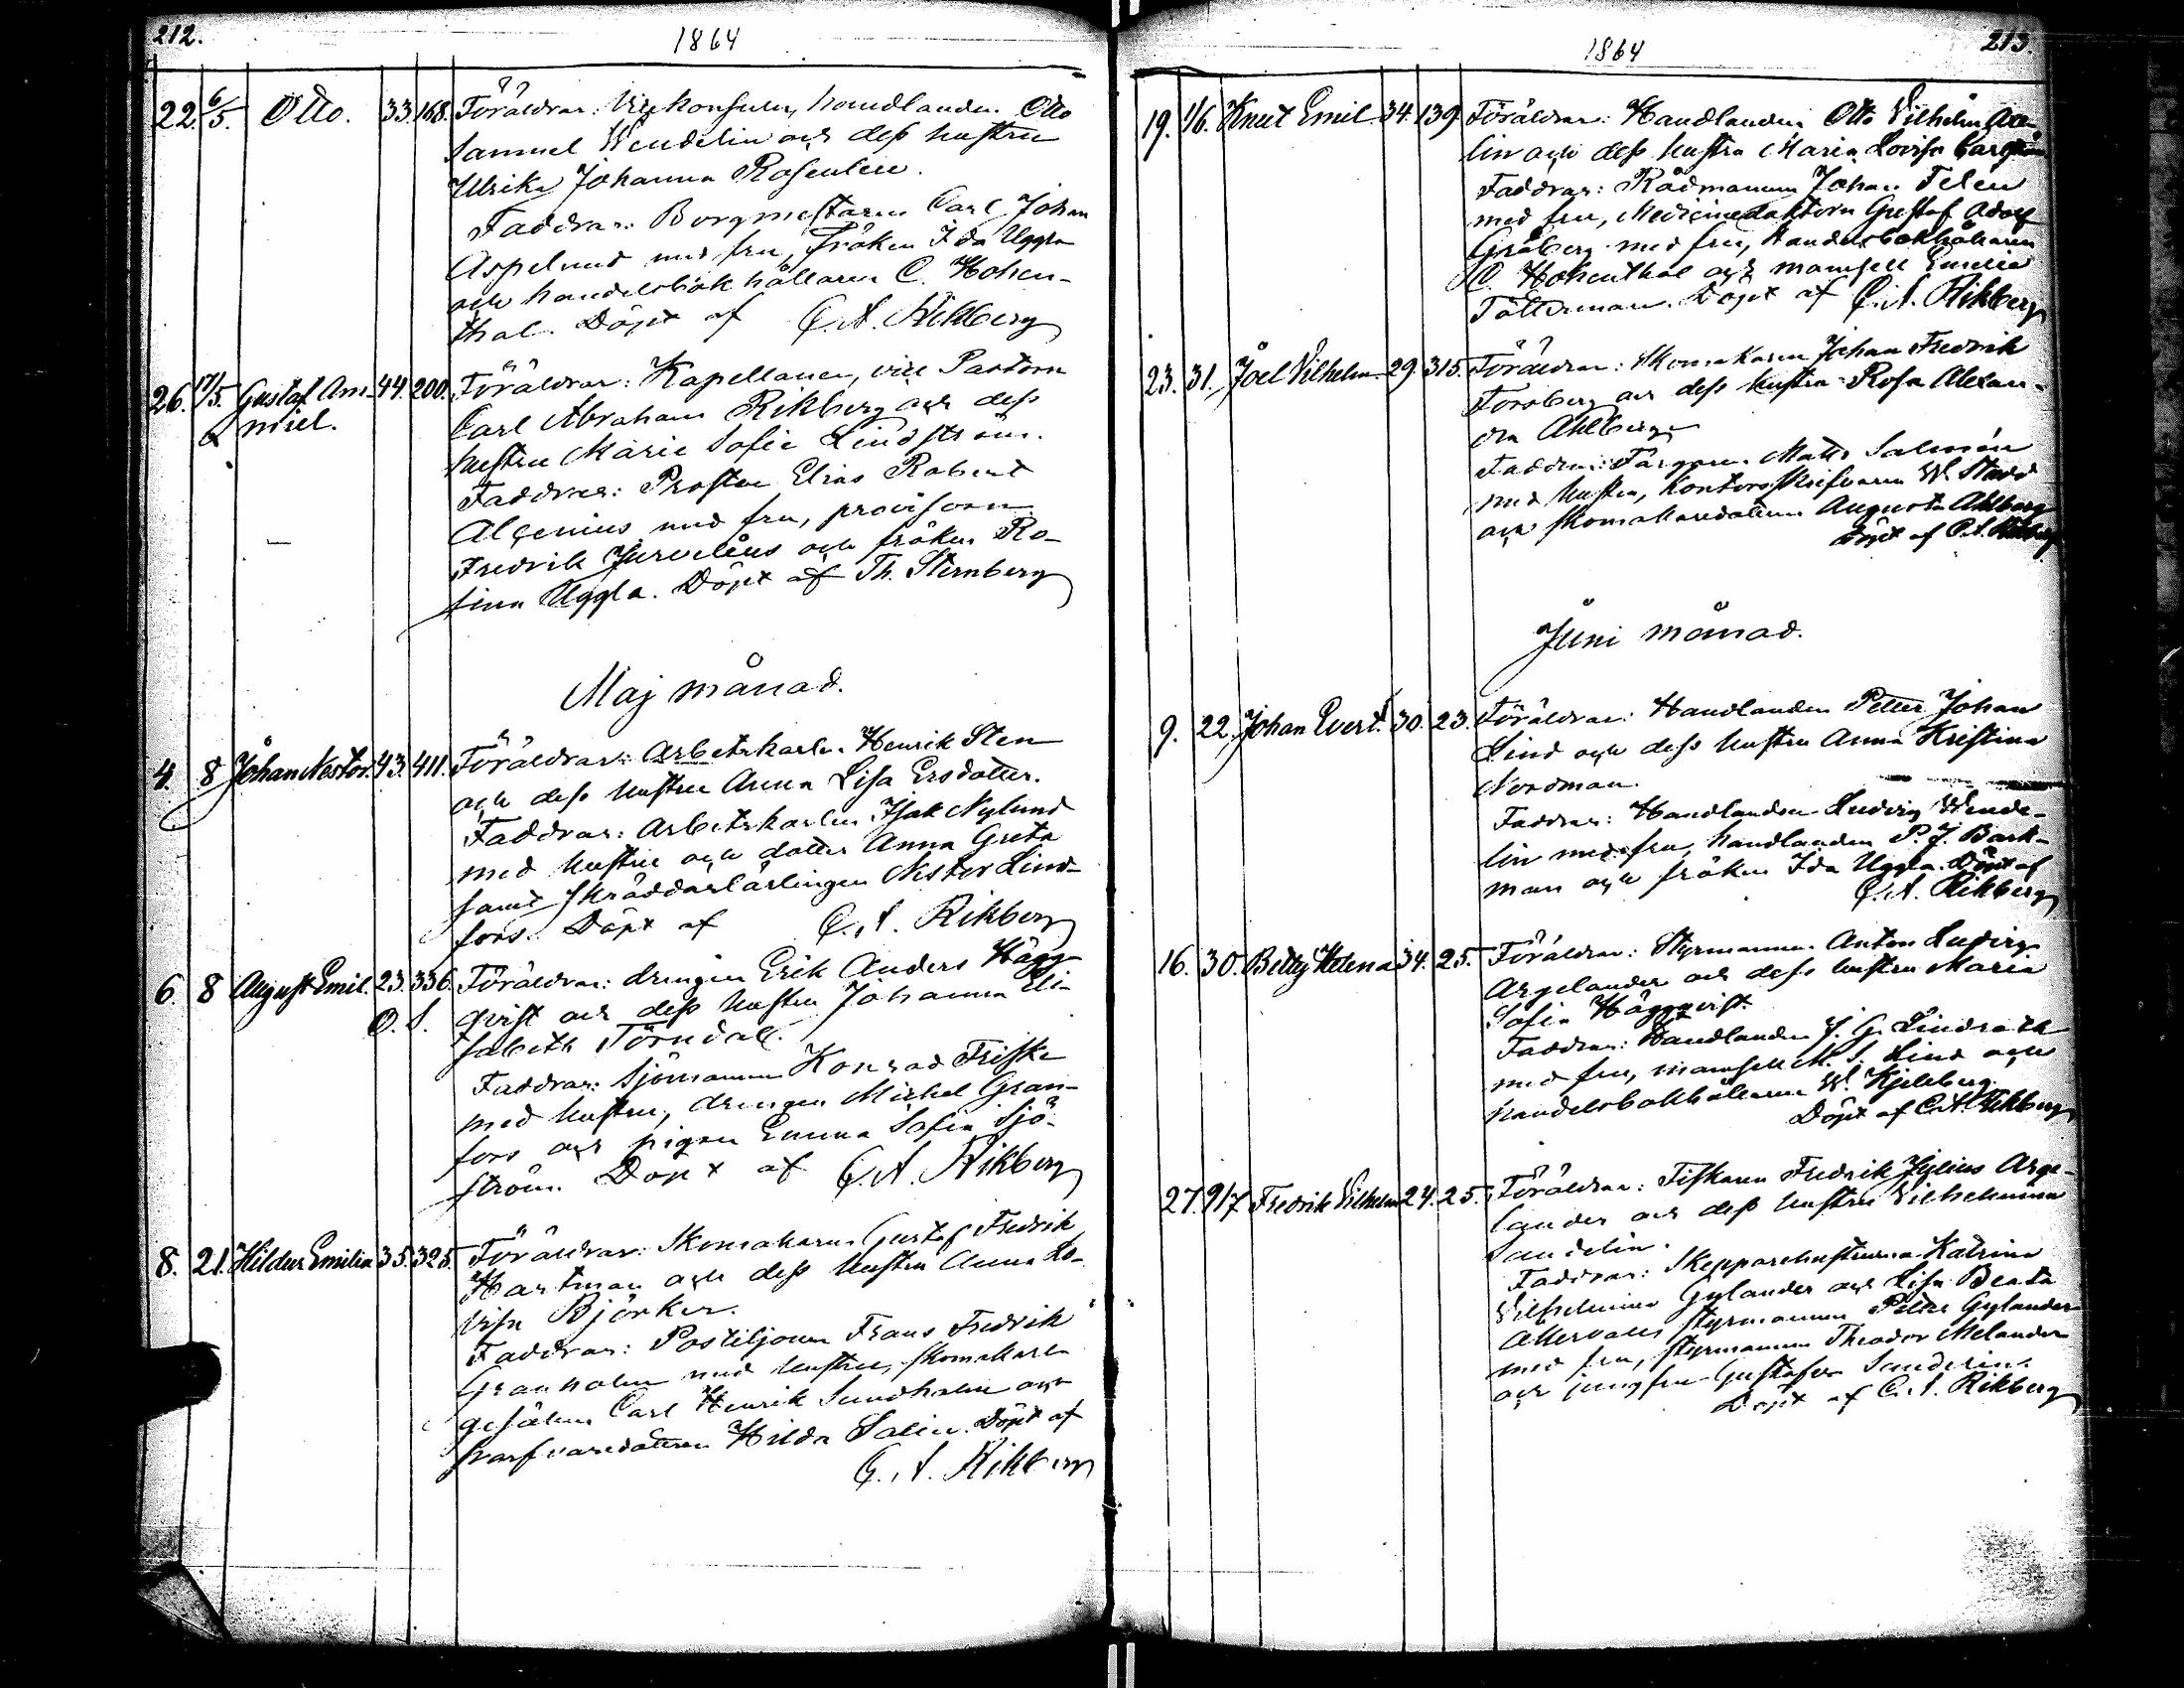 212.
1864
22. 6/5. Otto. 33. 168. Föräldrar: Vicekonsuln, handlanden Otto
Samuel Wendelin och dess hustru
Ulrika Johanna Rosenlew.
Faddrar: Borgmestaren Carl Johan
Aspelund med fru, fröken Ida Uggla
och handelsbokhållaren C. Hohen-
thal. Döpt af C. A. Rikberg
26. 17/5. Gustaf Am- 44. 200. Föräldrar: Kapellanen, vice Pastorn
niel. Carl Abraham Rikberg och dess
hustru Maria Sofia Lindström.
Faddrar: Prosten Elias Robert
Alcenius med fru, provisorn
Fredrik Jurvelius och fröken Ro-
sina Uggla. Döpt af Th. Sternberg
Maj månad.
4. 8 Johan Nestor 43. 411. Föräldrar: Arbetskarlen Henrik Sten
och dess hustru Anna Lisa Ersdotter.
Faddrar: Arbetskarlen Isak Nylund
med hustru och dotter Anna Greta
samt skräddarlärlingen Nestor Lind-
fors. Döpt af C. A. Rikberg
6. 8 August Emil. 23. 336. Föräldrar: drengen Erik Anders Hägg-
O. S. qvist och dess hustru Johanna Eli-
sabeth Törndal.
Faddrar: Sjömannen Konrad Friske
med hustru, drengen Mickel Gran-
fors och pigan Emma Sofia Sjö-
ström. Döpt af C. A. Rikberg
8. 21. Hildur Emilia 35. 325. Föräldrar: Skomakaren Gustaf Fredrik
Hartman och dess hustru Anna Lo-
visa Björker.
Faddrar: Postiljonen Frans Fredrik
Granholm med hustru, skomakare
gesällen Carl Henrik Sundholm och
garfvaredottern Hilda Salin. Döpt af
C. A. Rikberg
213.
1864
19. 1/6. Knut Emil 34. 139. Föräldrar: Handlanden Otto Vilhelm
lin och dess hustru Maria Lovisa
Faddrar: Rådmannen Johan Telén
med fru, Medicinedoktorn Gustaf Adolf
Gråberg med fru, handelsbokhållaren
C. Hohenthal och mamsell Emelie
Tötterman. Döpt af C. A. Rikberg
23. 31. Joel Vilhelm. 29. 315. Föräldrar: Skomakaren Johan Fredrik
Forsberg och dess hustru Rosa Alexan-
dra Ahlberg
Faddrar: Färgaren Matts Salmén
med hustru, Kontorsskrifvaren W.
och skomakaredottern Augusta Ahlberg
Döpt af C. A. Rikberg
Juni månad.
9. 22. Johan Evert. 30. 23. Föräldrar: Handlanden Petter Johan
Lind och dess hustru Anna Kristina
Nordman.
Faddrar: Handlanden Ludvig Wende-
lin med fru, handlanden P. J. Bark-
man och fröken Ida Uggla. Döpt af
C. A. Rikberg
16. 30. Betty Helena 34. 25. Föräldrar: Styrmannen Anton Ludvig
Argelander och dess hustru Maria
Sofia Häggqvist.
Faddrar: Handlanden J. G. Lindroth
med fru, mamsell M. S. Lind och
handelsbokhållaren W. Kjelberg.
Döpt af C. A. Rikberg
27. 9/7 Fredrik Vilhelm 24. 25. Föräldrar: Fiskaren Fredrik Julius Arge-
lander och dess hustru Vilhelmina
Sandelin.
Faddrar: Skepparehustrurna Katrina
Vilhelmina Gylander och Lisa Beata
Åkervall, styrmannen Petter Gylander
med fru, styrmannen Theodor Melander
och jungfru Gustafva Sandelin.
Döpt af C. A. Rikberg